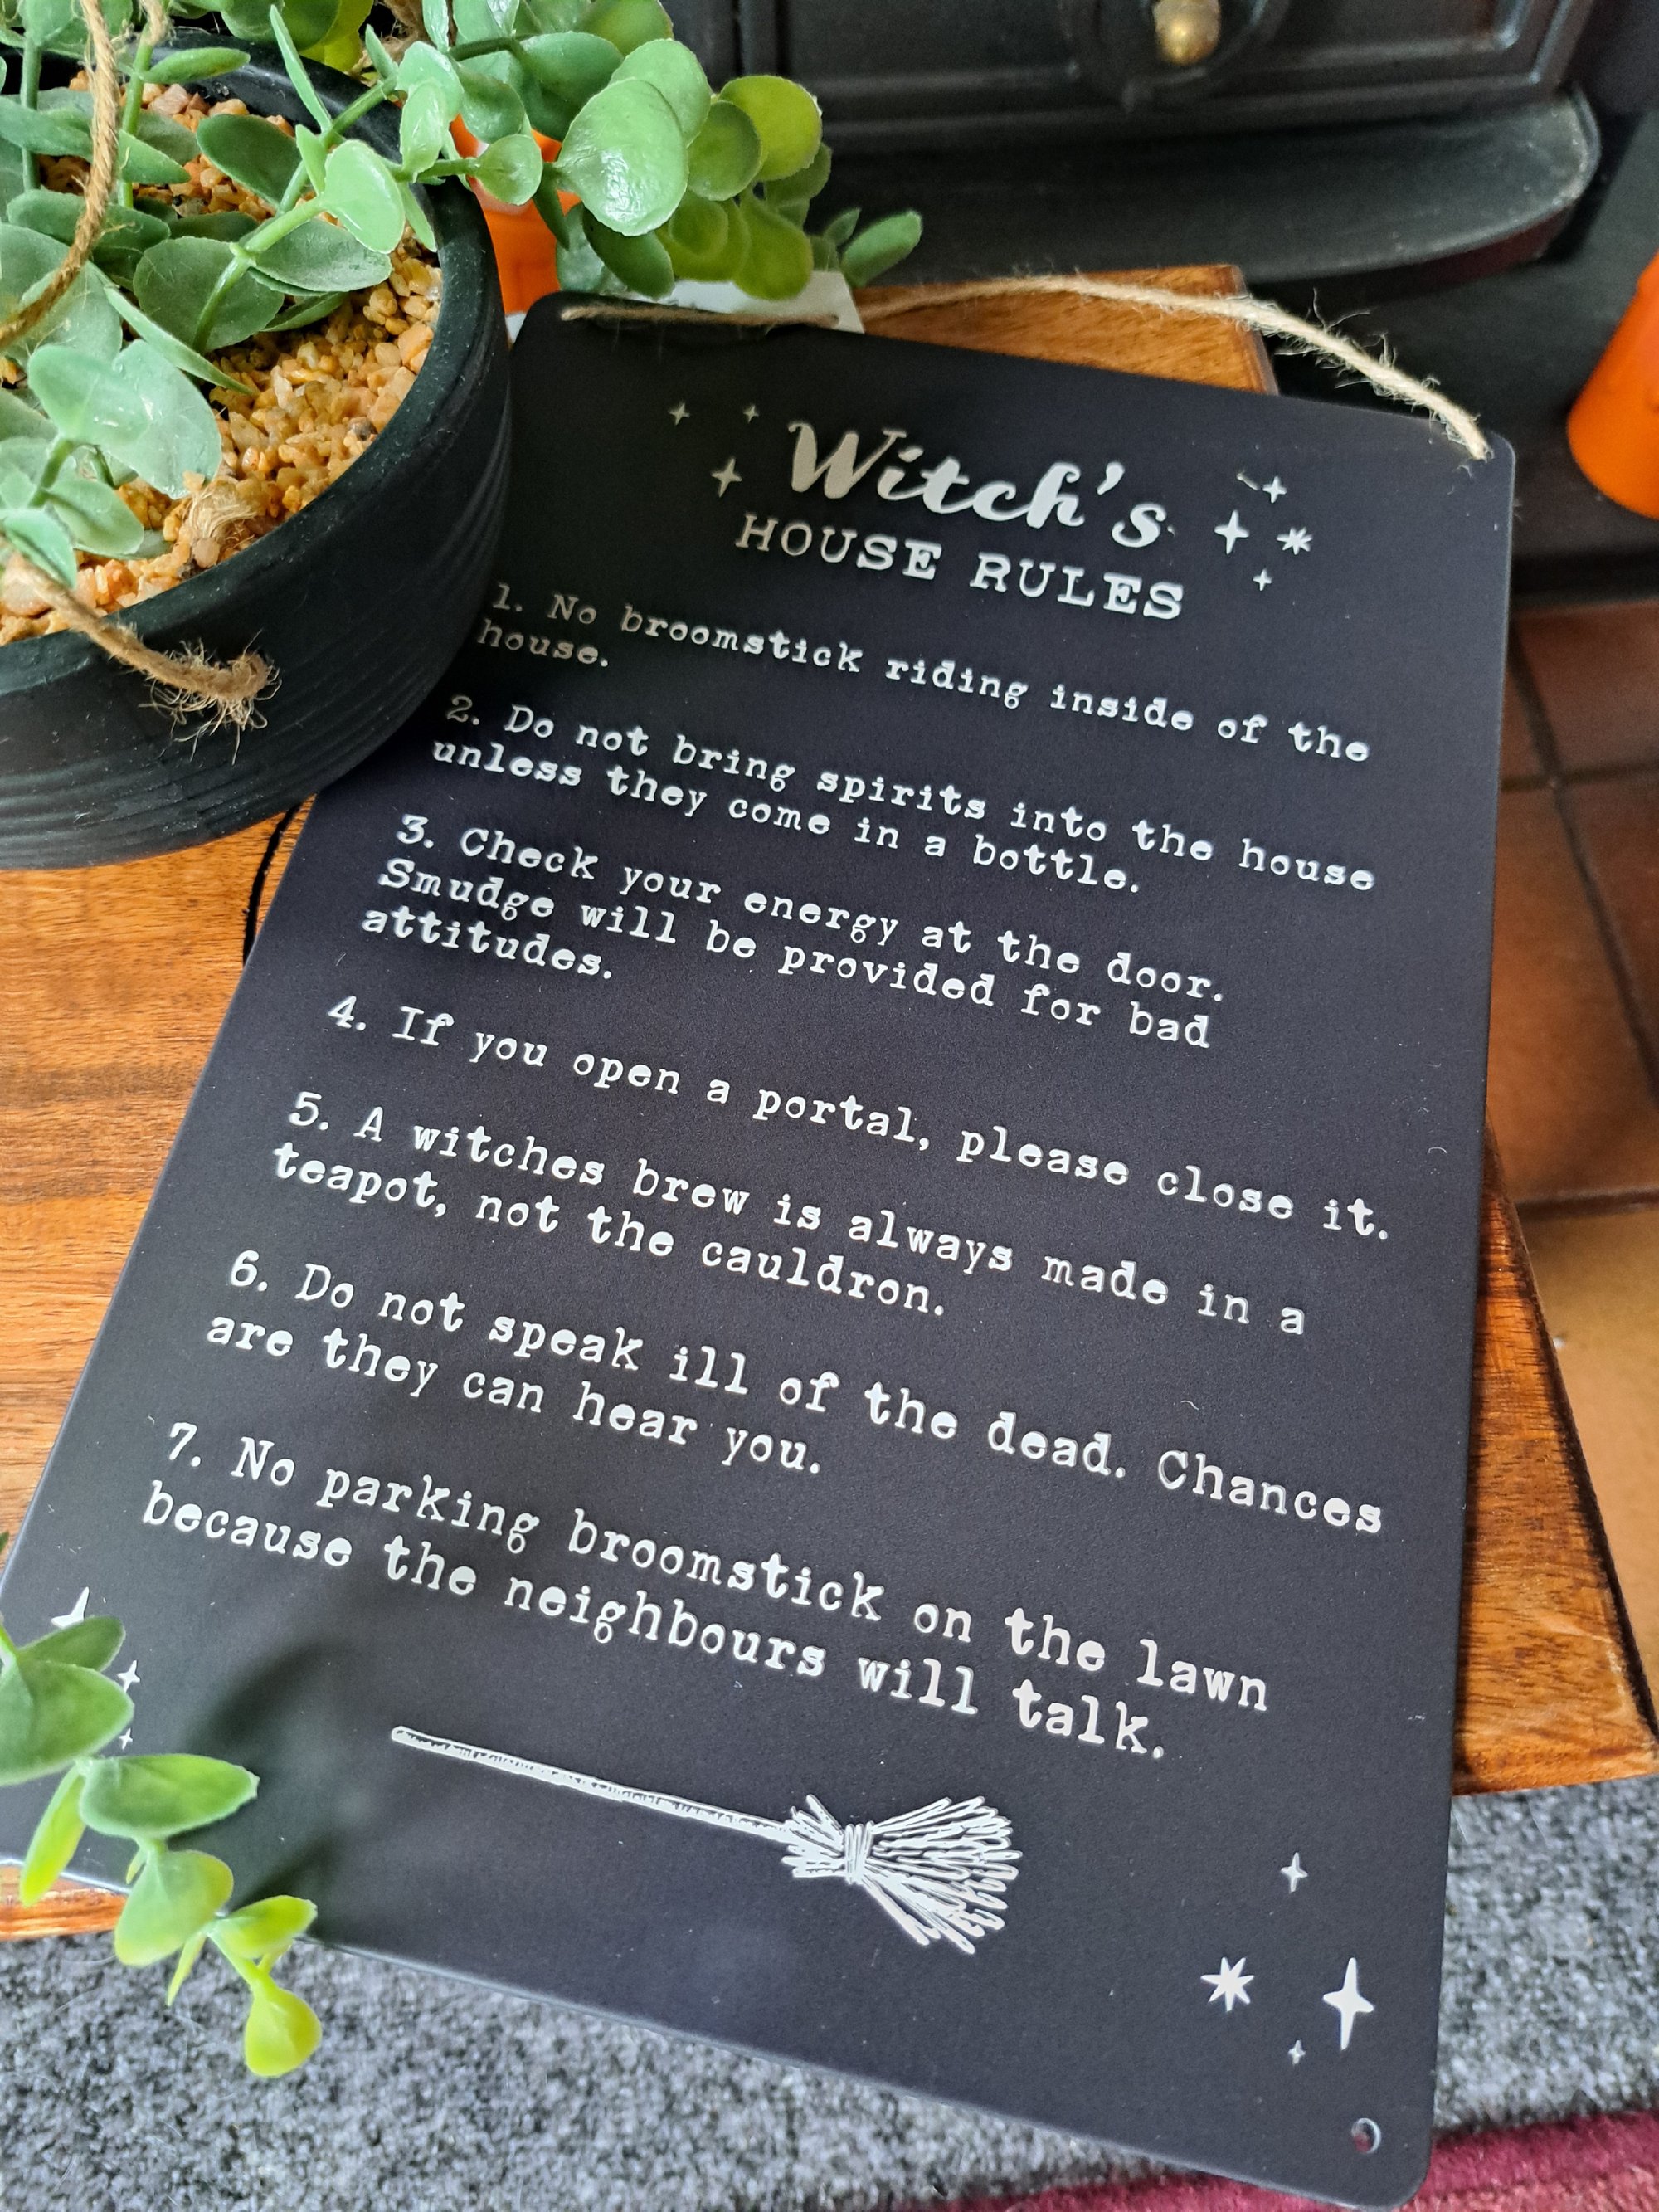 Witch's
HOUSE RULES
1. No broomstick riding inside of the
house.
2. Do not bring spirits into the house
unless they come in a bottle.
3. Check your energy at the door.
Smudge will be provided for bad
attitudes.
4. If you open a portal, please close it.
5. A witches brew is always made in a
teapot, not the cauldron.
6. Do not speak ill of the dead. Chances
are they can hear you.
7. No parking broomstick on the lawn
because the neighbours will talk.